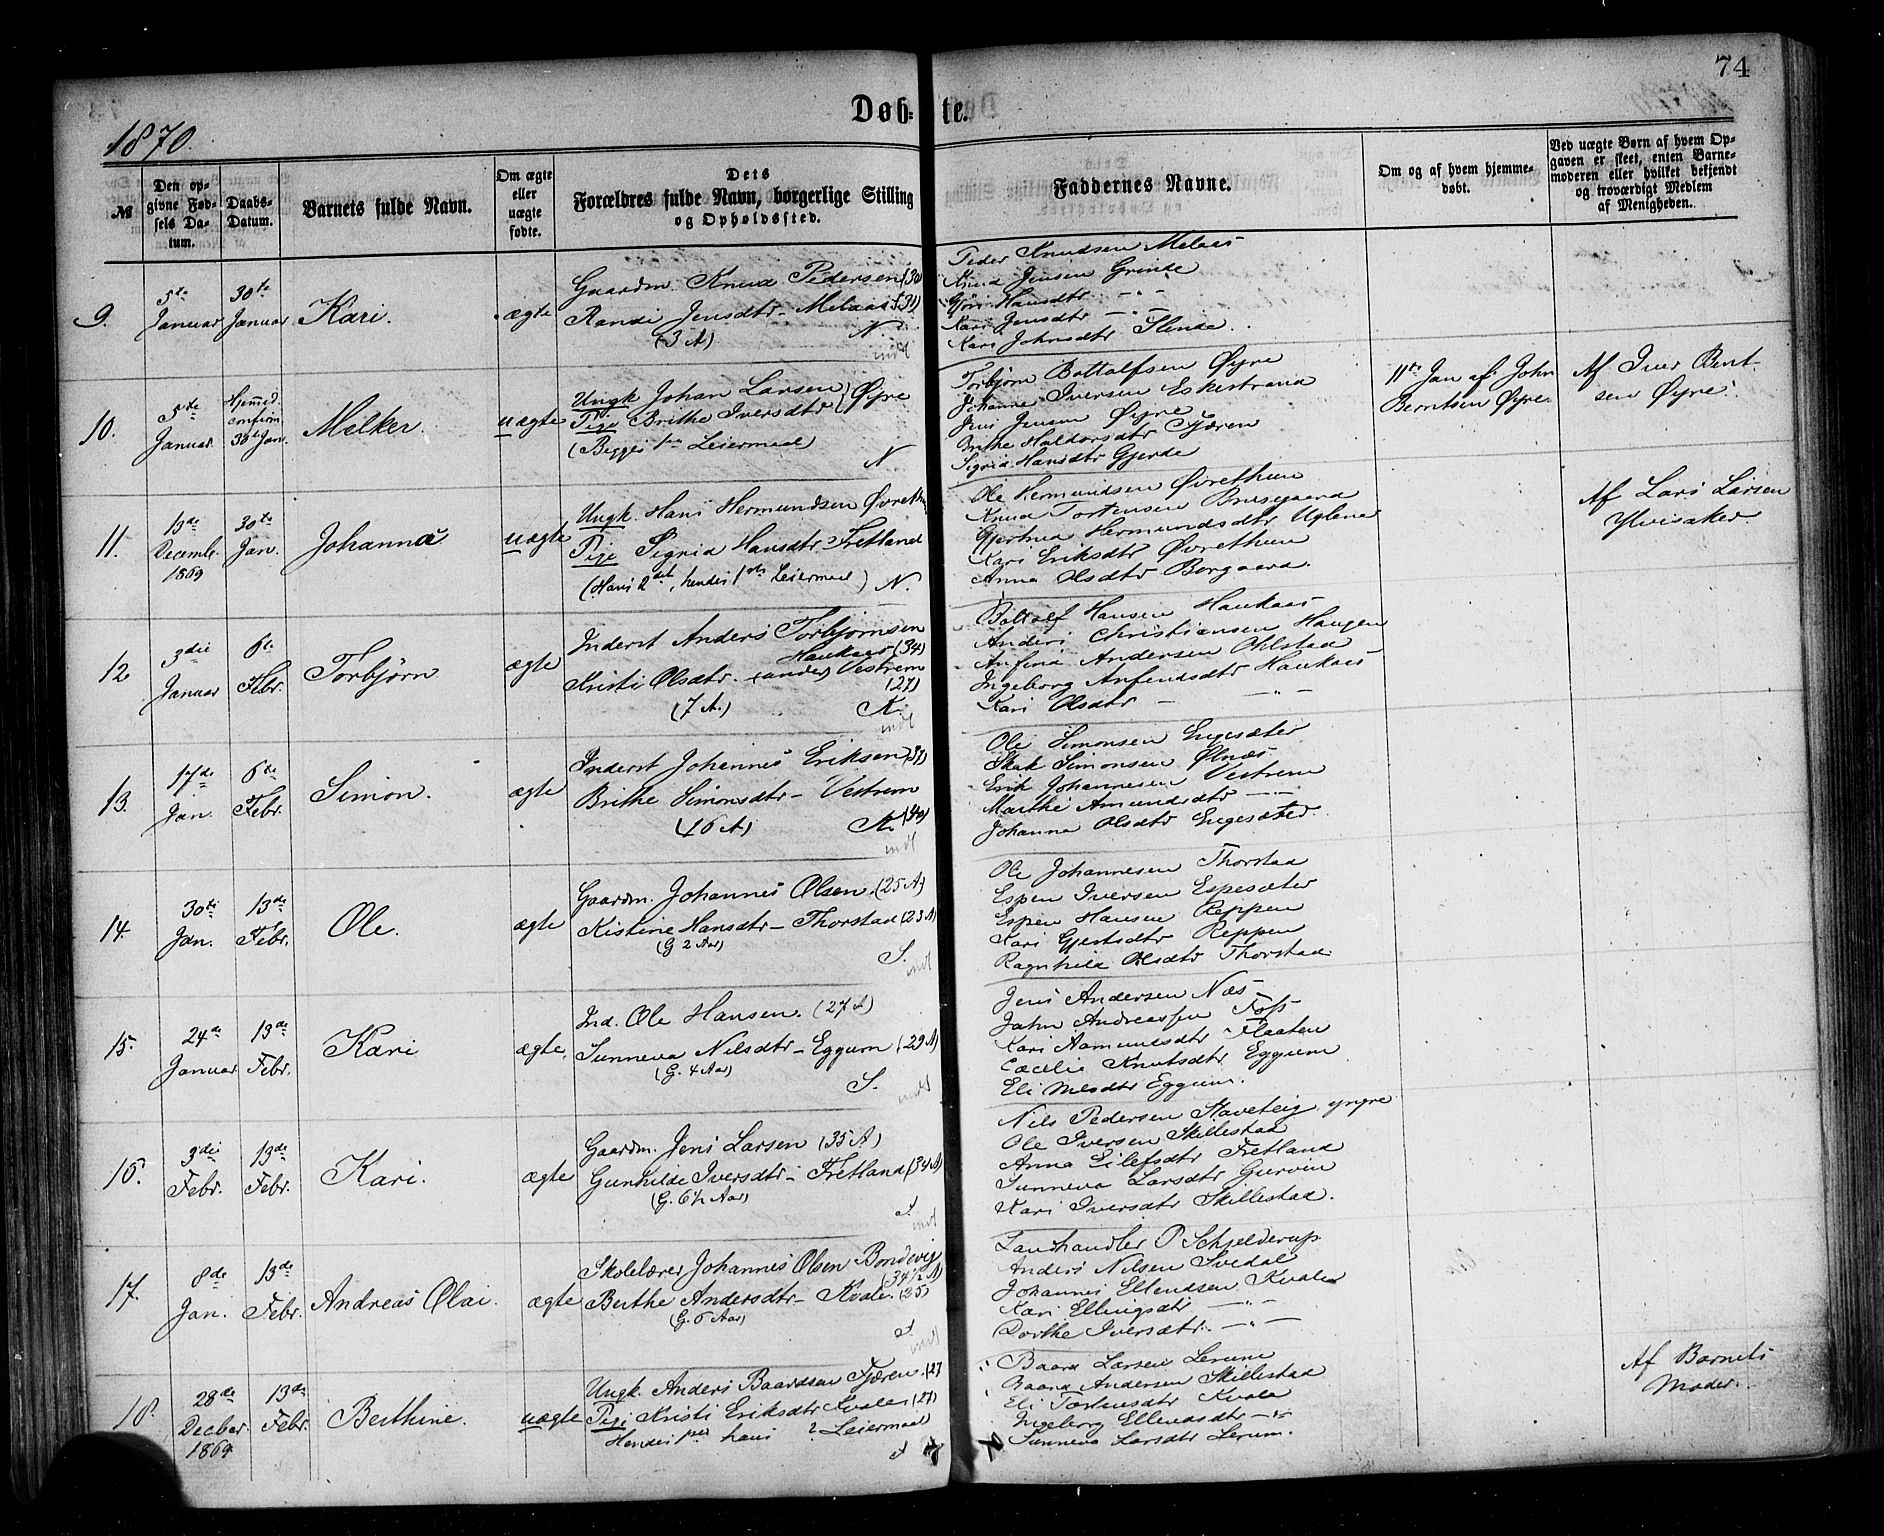 74
Døb- te.
1870
№
Den opgivne Fødsels Datum.
Daabs-Datum.
Barnets fulde Navn.
Om ægte eller uægte fødte.
Dets Forældres fulde Navn, borgerlige Stilling og Opholdssted.
Faddernes Navne.
Om og af hvem hjemmedøbt.
Ved uægte Børn af hvem Opgaven er skeet, enten Barnemoderen eller hvilket bekjendt og troværdigt Medlem af Menigheden.
9.
5te Januar
30te Januar
Kari.
ægte
Gaardm. Knud Pedersen (30)
Randi Jensdtr - Melaas (31)
(3 A) N
indt
Peder Knudsen Melaas
Knud Jensen Grinde
Gjøri Hansdtr - " -
Kari Jensdtr - " -
Kari Johnsdtr Slinde.
10.
5te Januar
Hjemmed. confirm. 30te Jan.
Melker.
uægte
Ungk Johan Larsen } Øyre
Pige Brithe Iversdtr
(Begges 1ste Leiermaal)
N
Torbjørn Bottolfsen Øyre
Johannes Iversen Eskestrand
Jens Jensen Øyre
Brithe Haldorsdtr Fjæren
Sigrid Hansdtr Gjerde
11te Jan af John
Berntsen Øyre.
Af Iver Bentsen Øyre.
11.
13de Decembr. 1869
30te Jan.
Johanna
uægte
Ungk. Hans Hermundsen Øvrethun
Pige Sigrid Hansdtr Fretland
(Hans 2det, hendes 1ste Leiermaal) N.
Ole Hermundsen Øvrethun
Knud Torstensen Brusegaard
Gjertrud Hermundsdtr Uglene
Kari Eriksdtr Øvrethun
Anna Olsdtr Borgaard.
Af Lars Larsen
Ylvisaker.
12
3die Januar
6te Febr.
Torbjørn
ægte
Inderst Anders Torbjørnsen
Haukaas (34)
Kristi Olsdtr. (andes) Vestrem
(27)
(7 A.) K.
indt
Bottolf Hansen Haukaas
Anders Christiansen Haugen
Anfind Andersen Ohlstad
Ingeborg Anfindsdtr Haukaas
Kari Olsdtr - - " -
13.
17de Jan.
6te Febr.
Simon.
ægte
Inderst Johannes Eriksen (37)
Brithe Simonsdtr - Vestrem
(16 A) K. (40)
indt
Ole Simonsen Engesæter
Skak Simonsen Ølnæs
Erik Johannesen Vestrem
Marthe Amundsdtr - " -
Johanna Olsdtr Engesæter.
14.
30te Jan.
13de Febr.
Ole.
ægte
Gaardm. Johannes Olsen. (25 A)
Kistine Hansdtr - Thorstad (23 A)
(G 2 Aar)
S.
indt
Ole Johannesen Thorstad
Espen Iversen Espesæter
Espen Hansen Reppen
Kari Gjertsdtr Reppen
Ragnhild Olsdtr Thorstad
15.
24de Januar
13de Febr.
Kari
ægte.
Ind. Ole Hansen. (27 A)
Sunneva Nilsdtr - Eggum (29 A)
(G. 4 Aar)
S.
indt
Jens Andersen Næs
John Andreassen Foss
Kari Aamundsdtr Flaaten
Cæcilie Knutsdtr Eggum
Eli Nilsdtr Eggum.
16.
3die Febr.
13de Febr.
Kari.
ægte
Gaardm. Jens Larsen (35 A)
Gunhilde Iversdtr - Fretland (34 A)
(G. 6½ Aar)
indt
Nils Pedersen Staveteig, yngre
Ole Iversen Skillestad
Anna Eilefsdtr Fretland
Sunneva Larsdtr Gurvin
Kari Iversdtr Skillestad.
17.
8de Jan.
13de Febr.
Andreas Olai.
ægte
Skolelærer Johannes Olsen Bondevig
(34½ A)
Berthe Andersdtr - Kvale. (35)
(G. 6 Aar)
indt
Landhandler P Schjelderup.
Anders Nilsen Svedal
Johannes Ellendsen Kvale
Kari Ellingsdtr - " -
Dorthe Iversdtr. - " -
18.
28de Decber. 1869
13de Febr.
Berthine.
uægte
Ungk. Anders Baardsen Fjæren. (27
Pige Kristi Eriksdtr Kvale (27)
Hendes 1ste hans 2 Leiermaal
Baard Larsen Lerum
Baard Andersen Skillestad
Eli Torstensdtr Kvale
Ingeborg Ellendsdtr - " -
Sunneva Larsdtr Lerum.
Af Barnets
Moder.